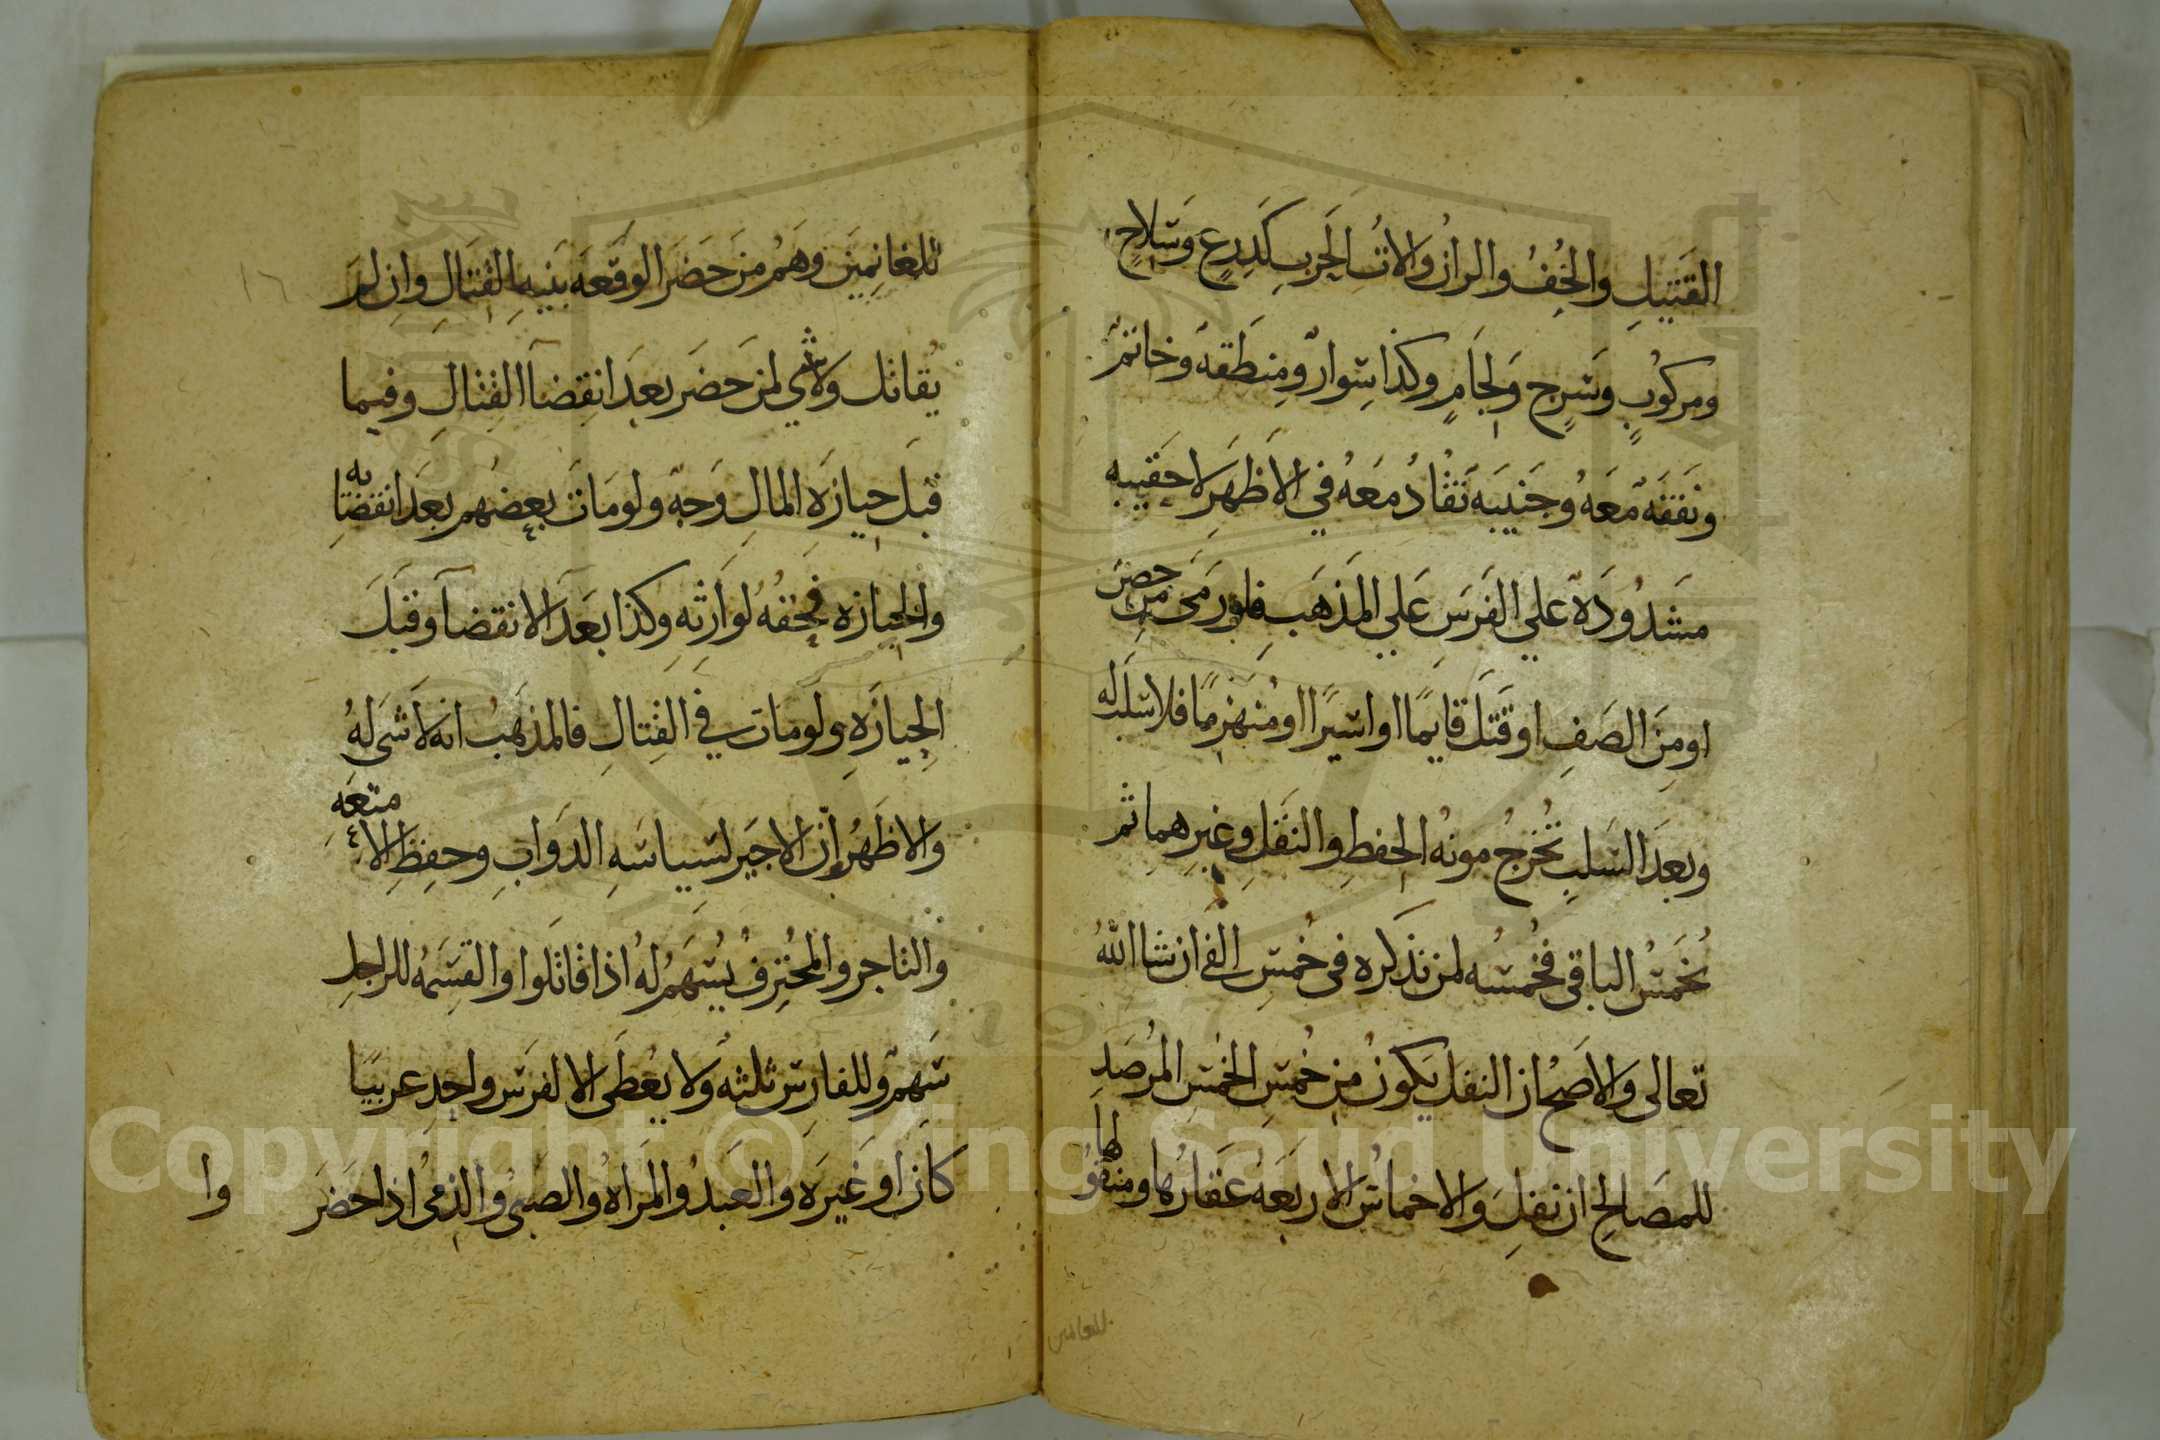 القتيل والخف والران والات الحرب كدرع وسلاح
ومركوب وسرج ولجام وكذا سوار ومنطقة وخاتم
ونفقة معه وجنيبة تقاد معه في الاظهر لا حقيبة
مشدودة علي الفرس علي المذهب فلو رمى من حصن
او من الصف او قتل قايما او اسيرا او منهزما فلا سلب له
وبعد السلب تخرج مونة الحفظ والنقل وغيرهما ثم
يخمس الباقي فخمسه لمن نذكره في خمس الفي ان شا الله
تعالى والاصح ان النفل يكون من خمس الخمس المرصد
للمصالح ان نفل والاخماس الاربعة عقارها ومنقولها
للغانمين
للغانمين وهم من حضر الوقعة بنية القتال وان لم
يقاتل ولا شي لمن حضر بعد انقضا القتال وفيما
قبل حيازة المال وجه ولو مات بعضهم بعد انقضايه
والحيازة فحقه لوارثه وكذا بعد الانقضا وقبل
الحيازة ولو مات في القتال فالمذهب انه لا شى له
والاظهر إن الاجير لسياسة الدواب وحفظ الامتعة
والتاجر والمحترف يسهم له اذا قاتلوا والقسمة للراجل
سهم وللفارس ثلثة ولا يعطى الا لفرس واحد عربيا
كان او غيره والعبد والمراة والصبي والذمي اذا حضر
وا
١٦
Copyright © King Saud University
1957